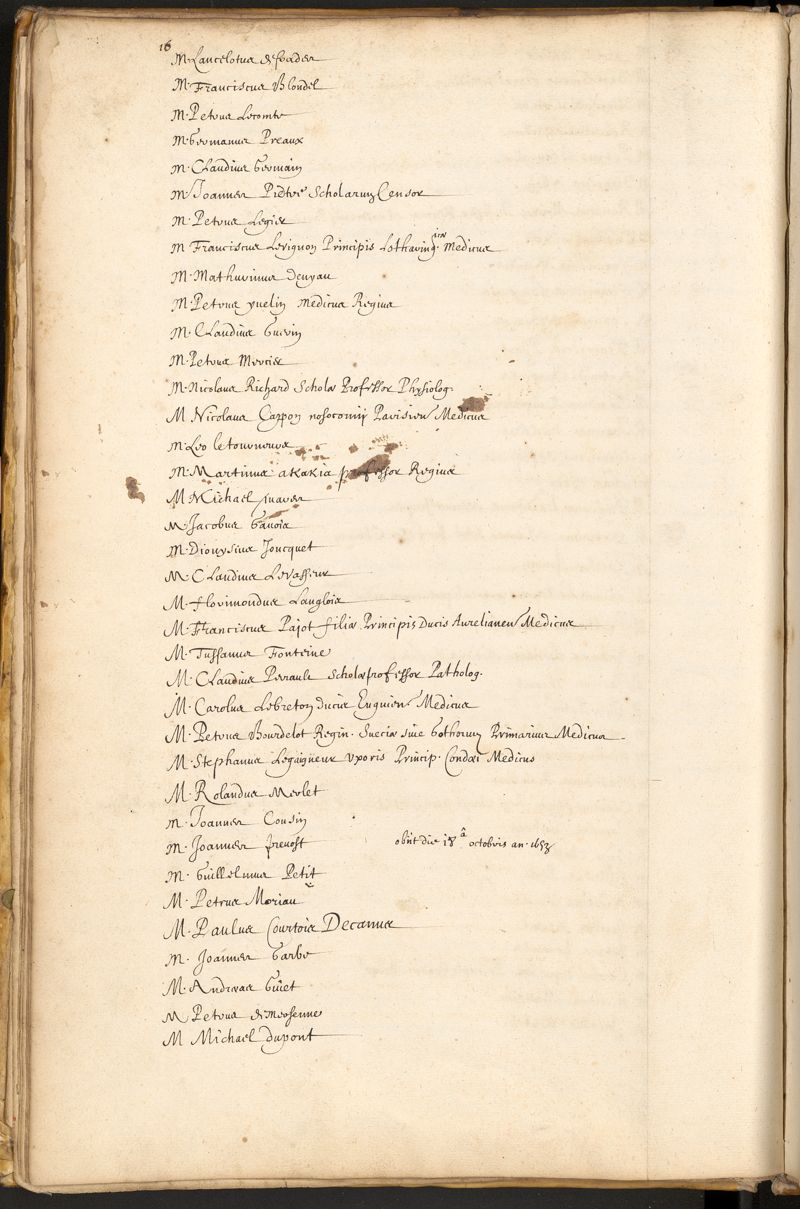 16
M. Lancelotus de frades
M. Franciscus Blondel
M. Petrus Lecomte
M. Germanus Preaux
M. Claudius Germain
M. Joannes Piètre Scholarum Censor
M. Petrus Legier
M. Franciscus Levignon Principis Lotharing. Medicus
M. Mathurinus Denyau
M. Petrus yvelin Medicus Reginæ
M. Claudius Guerin
M. Petrus Mercier
M. Nicolaus Richard Scholæ Professor Physiolog.
M Nicolaus Cappon nosocomij Parisien Medicus
M. Leo letourneurs
M. Martinus akakia professor Regius
M Michael
M Jacobus Gavois
M. Dionysius Joncquet
M. Claudius Levasseur
M. florimondus Langlois
M. Franciscus Pajot filiæ Principis Ducis Aurelianen Medicus
M. Tussanus Fonteine
M. Claudius Perrault Scholæ professor Patholog.
M. Carolus Lebreton Ducis Enguien Medicus
M. Petrus Bourdelot Regin. Sueciæ sive Gothorum Primarius Medicus
M. Stephanus Legaigneur Uxoris Princip. Condæi Medicus
M. Rolandus Merlet
M. Joannes Cousin
M. Joannes prevost obiit die 18.â octobris an. 1653
M. Guillelmus Petit
M. Petrus Moriau
M. Paulus Courtois Decanus
M. Joannes Garbe
M. Andræas Guiet
M Petrus de Mersenne
M Michael dupont